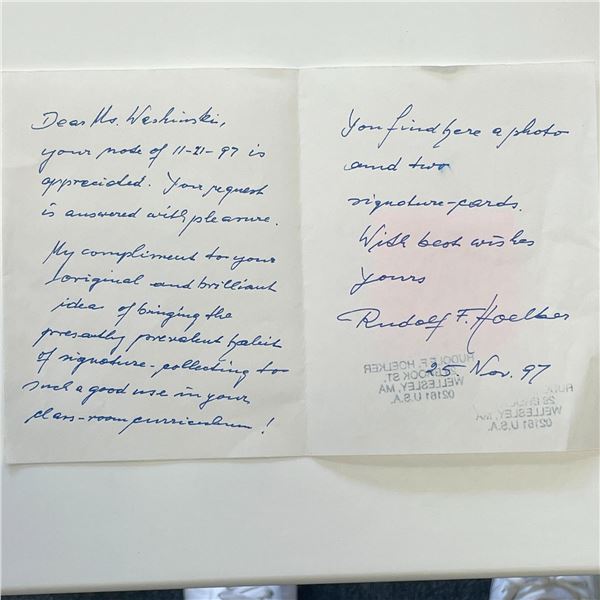 Dear Ms. Washinski,
your note of 11-21-97 is
appreciated. Your request
is answered with pleasure.
My compliment to your
original and brilliant
idea of bringing the
presently prevalent habit
of signature-collecting to
such a good use in your
class-room curriculum!
You find here a photo
and two
signature-cards.
With best wishes
yours
Rudolf F. Hoelker
25 Nov. 97
RUDOLF F. HOELKER
BROOK ST.
WELLESLEY, MA
02181 U.S.A.
WELLESLEY, MA
02181 U.S.A.